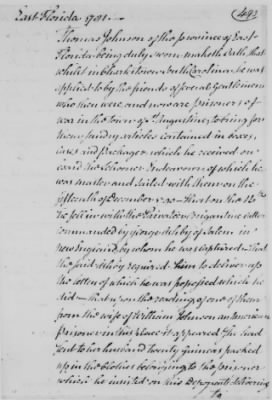 (493
East Florida 1781.
Thomas Johnson of the Province of East-
Florida being duly sworn maketh Oath, that
whilst in Charlestown South Carolina he was
applied to by the friends of several Gentlemen
who then were, and now are prisoners of
war in the Town of Augustine, to bring for
them sundry articles contained in boxes,
cases and packages which he received on
board the Schooner Endeavour of which he
was master and sailed with them on the
fifteenth of December 1780 — that on the 18th
he fell in with the Privateer Brigantine
commanded by George of Salem in
New England, by whom he was captured — that
the said required him to deliver up
the letters of which he was possessed which he
did — that upon the reading of one of them
from the wife of William Johnson an American
prisoner in this place it appeared she had
sent to her husband twenty guineas packed
up in the belonging to the prisoner
which he insisted on this Deponents delivering
to